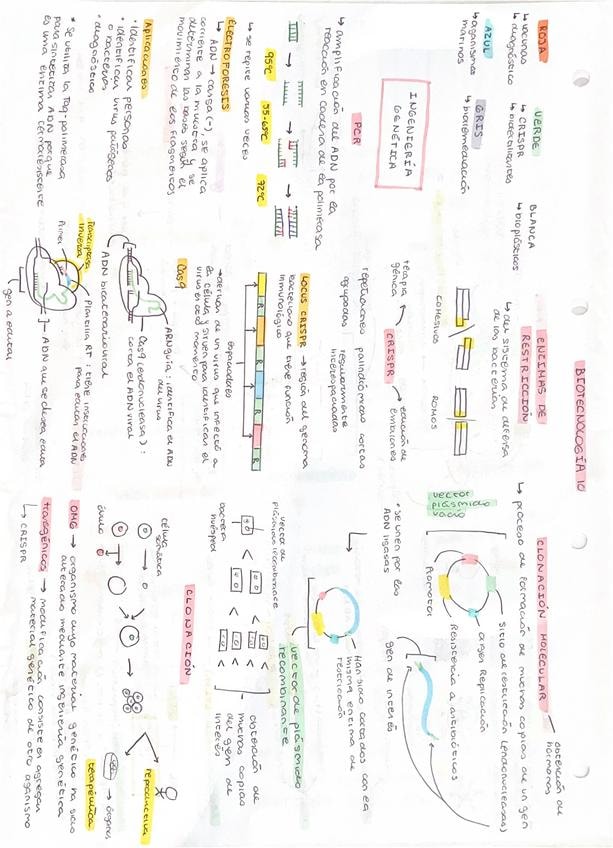 BIOTECNOLOGÍA 10
ROJA
↳ vacunas
↳ diagnóstico
VERDE
↳ CRISPR
↳ biofertilizantes
BLANCA
↳ bioplásticos
AZUL
↳ organismos
marinos
GRIS
↳ biorremediación
INGENIERÍA
GENÉTICA
PCR
↳ amplificación del ADN por la
reacción en cadena de la polimerasa
95ºC
55-65ºC
72ºC
↳ se repite varias veces
ELECTROFORESIS
↳ ADN → carga (-), se aplica
corriente a la muestra y se
determinan las bases según el
movimiento de los fragmentos
Aplicaciones
• Identificar personas
• Identificar virus patógenos
o bacterias
• diagnóstico
* Se utiliza la Taq-polimerasa
para sintetizar ADN porque
es una enzima termorresistente
ENZIMAS DE
RESTRICCIÓN
↳ del sistema de defensa
de las bacterias
COHESIVOS
ROMOS
CRISPR
técnica
génica
edición de
embriones
repeticiones palindrómicas cortas
agrupadas regularmente
interespaciadas
LOCUS CRISPR → región del genoma
bacteriano que tiene función
inmunológica
R
R
R
R
Espaciadores
→ derivan de un virus que infectó a
la célula y sirven para identificar el
virus en ese momento
Cas9
ARN guía: identifica el ADN
del virus
Cas9 (endonucleasa):
corta el ADN viral
ADN bicatenario viral
Transcriptasa
inversa
Primer
Plantilla RT: tiene instrucciones
para editar el ADN
ADN que se desea editar
gen a editar
CLONACIÓN MOLECULAR
obtención de
hormonas
↳ proceso de formación de muchas copias de un gen
vector
plásmido
vacío
Sitio de restricción (endonucleasas)
origen Replicación
Resistencia a antibióticos
Promotor
gen de interés
* Se unen por las
ADN ligasas
Han sido cortados con la
misma enzima de
restricción
vector de plásmido
recombinante
vector de
plásmido recombinante
bacteria
huésped
obtención de
muchas copias
del gen de
interés
CLONACIÓN
célula
somática
óvulo
reproductiva
terapéutica
órganos
OMG → organismo cuyo material genético ha sido
alterado mediante ingeniería genética
transgénicos → modificación consiste en agregar
material genético de otro organismo
↳ CRISPR